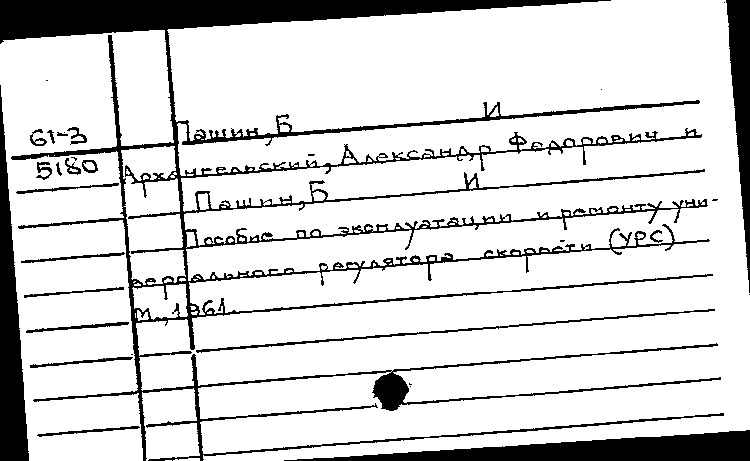 61-3 Пашин, Б И
5180 Архангельский, Александр Федорович и
Пашин, Б И
Пособие по эксплуатации и ремонту уни-
версального регулятора скорости (УРС)
М., 1961.